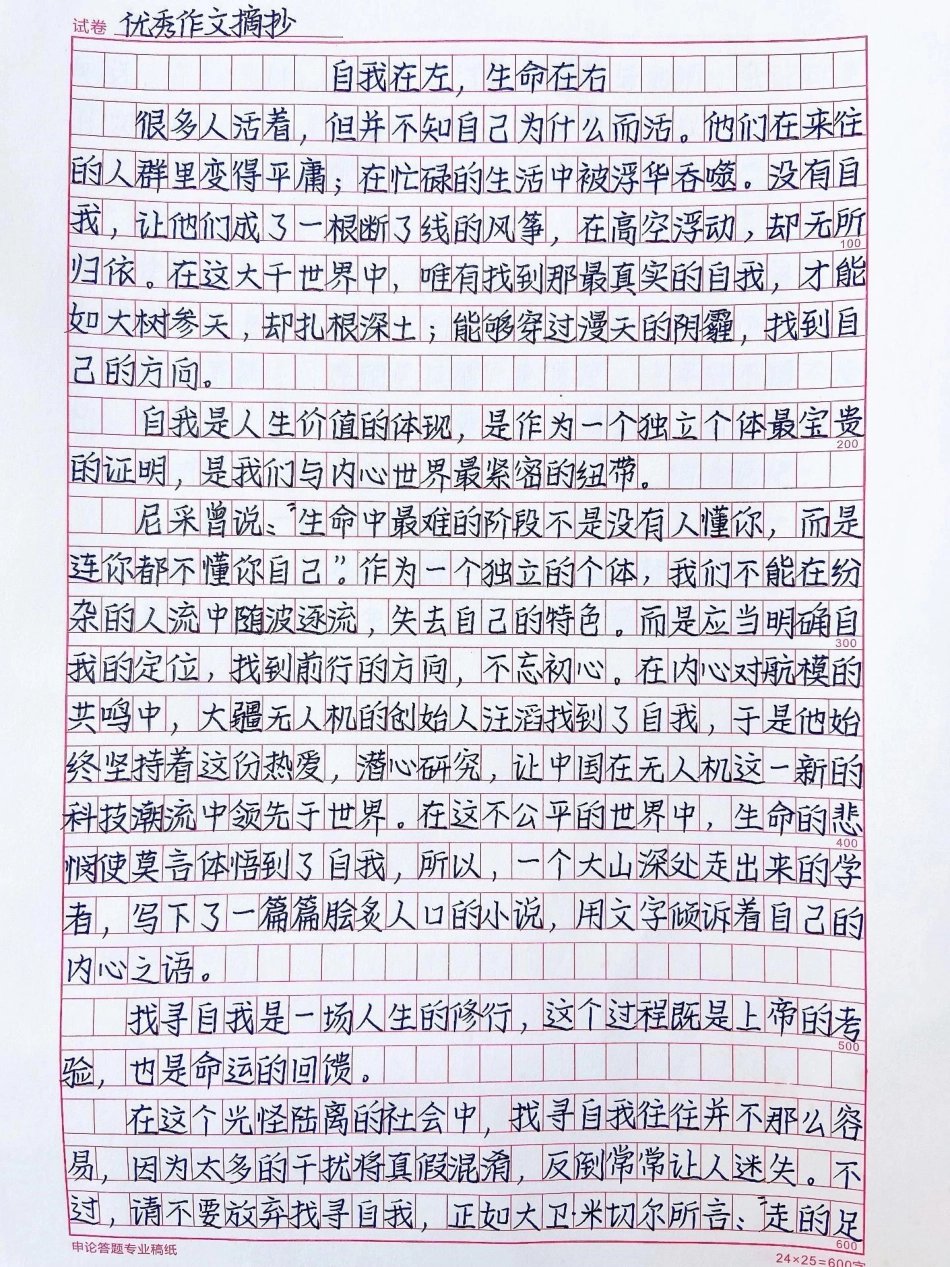 试卷 优秀作文摘抄
自我在左，生命在右
很多人活着，但并不知自己为什么而活。他们在来往
的人群里变得平庸；在忙碌的生活中被浮华吞噬。没有自
我，让他们成了一根断了线的风筝，在高空浮动，却无所
100
归依。在这大千世界中，唯有找到那最真实的自我，才能
如大树参天，却扎根深土；能够穿过漫天的阴霾，找到自
己的方向。
自我是人生价值的体现，是作为一个独立个体最宝贵
200
的证明，是我们与内心世界最紧密的纽带。
尼采曾说：“生命中最难的阶段不是没有人懂你，而是
连你都不懂你自己”。作为一个独立的个体，我们不能在纷
杂的人流中随波逐流，失去自己的特色。而是应当明确自
300
我的定位，找到前行的方向，不忘初心。在内心对航模的
共鸣中，大疆无人机的创始人汪滔找到了自我，于是他始
终坚持着这份热爱，潜心研究，让中国在无人机这一新的
科技潮流中领先于世界。在这不公平的世界中，生命的悲
400
悯使莫言体悟到了自我，所以，一个大山深处走出来的学
者，写下了一篇篇脍炙人口的小说，用文字倾诉着自己的
内心之语。
找寻自我是一场人生的修行，这个过程既是上帝的考
500
验，也是命运的回馈。
在这个光怪陆离的社会中，找寻自我往往并不那么容
易，因为太多的干扰将真假混淆，反倒常常让人迷失。不
过，请不要放弃找寻自我，正如大卫·米切尔所言：“走的足
600
申论答题专业稿纸
24×25=600字